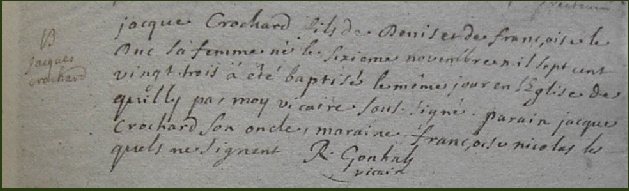 B
jacques
crochard
jacque Crochard fils de Denis et de françoise le
Duc sa femme né le sixieme novembre mil sept cent
vingt trois a été baptisé le même jour en l'Eglise de
quilly par moy vicaire sous-signé. parain jacque
Crochard son oncle, maraine françoise nicolas les
quels ne signent R. Gonhal
vicaire